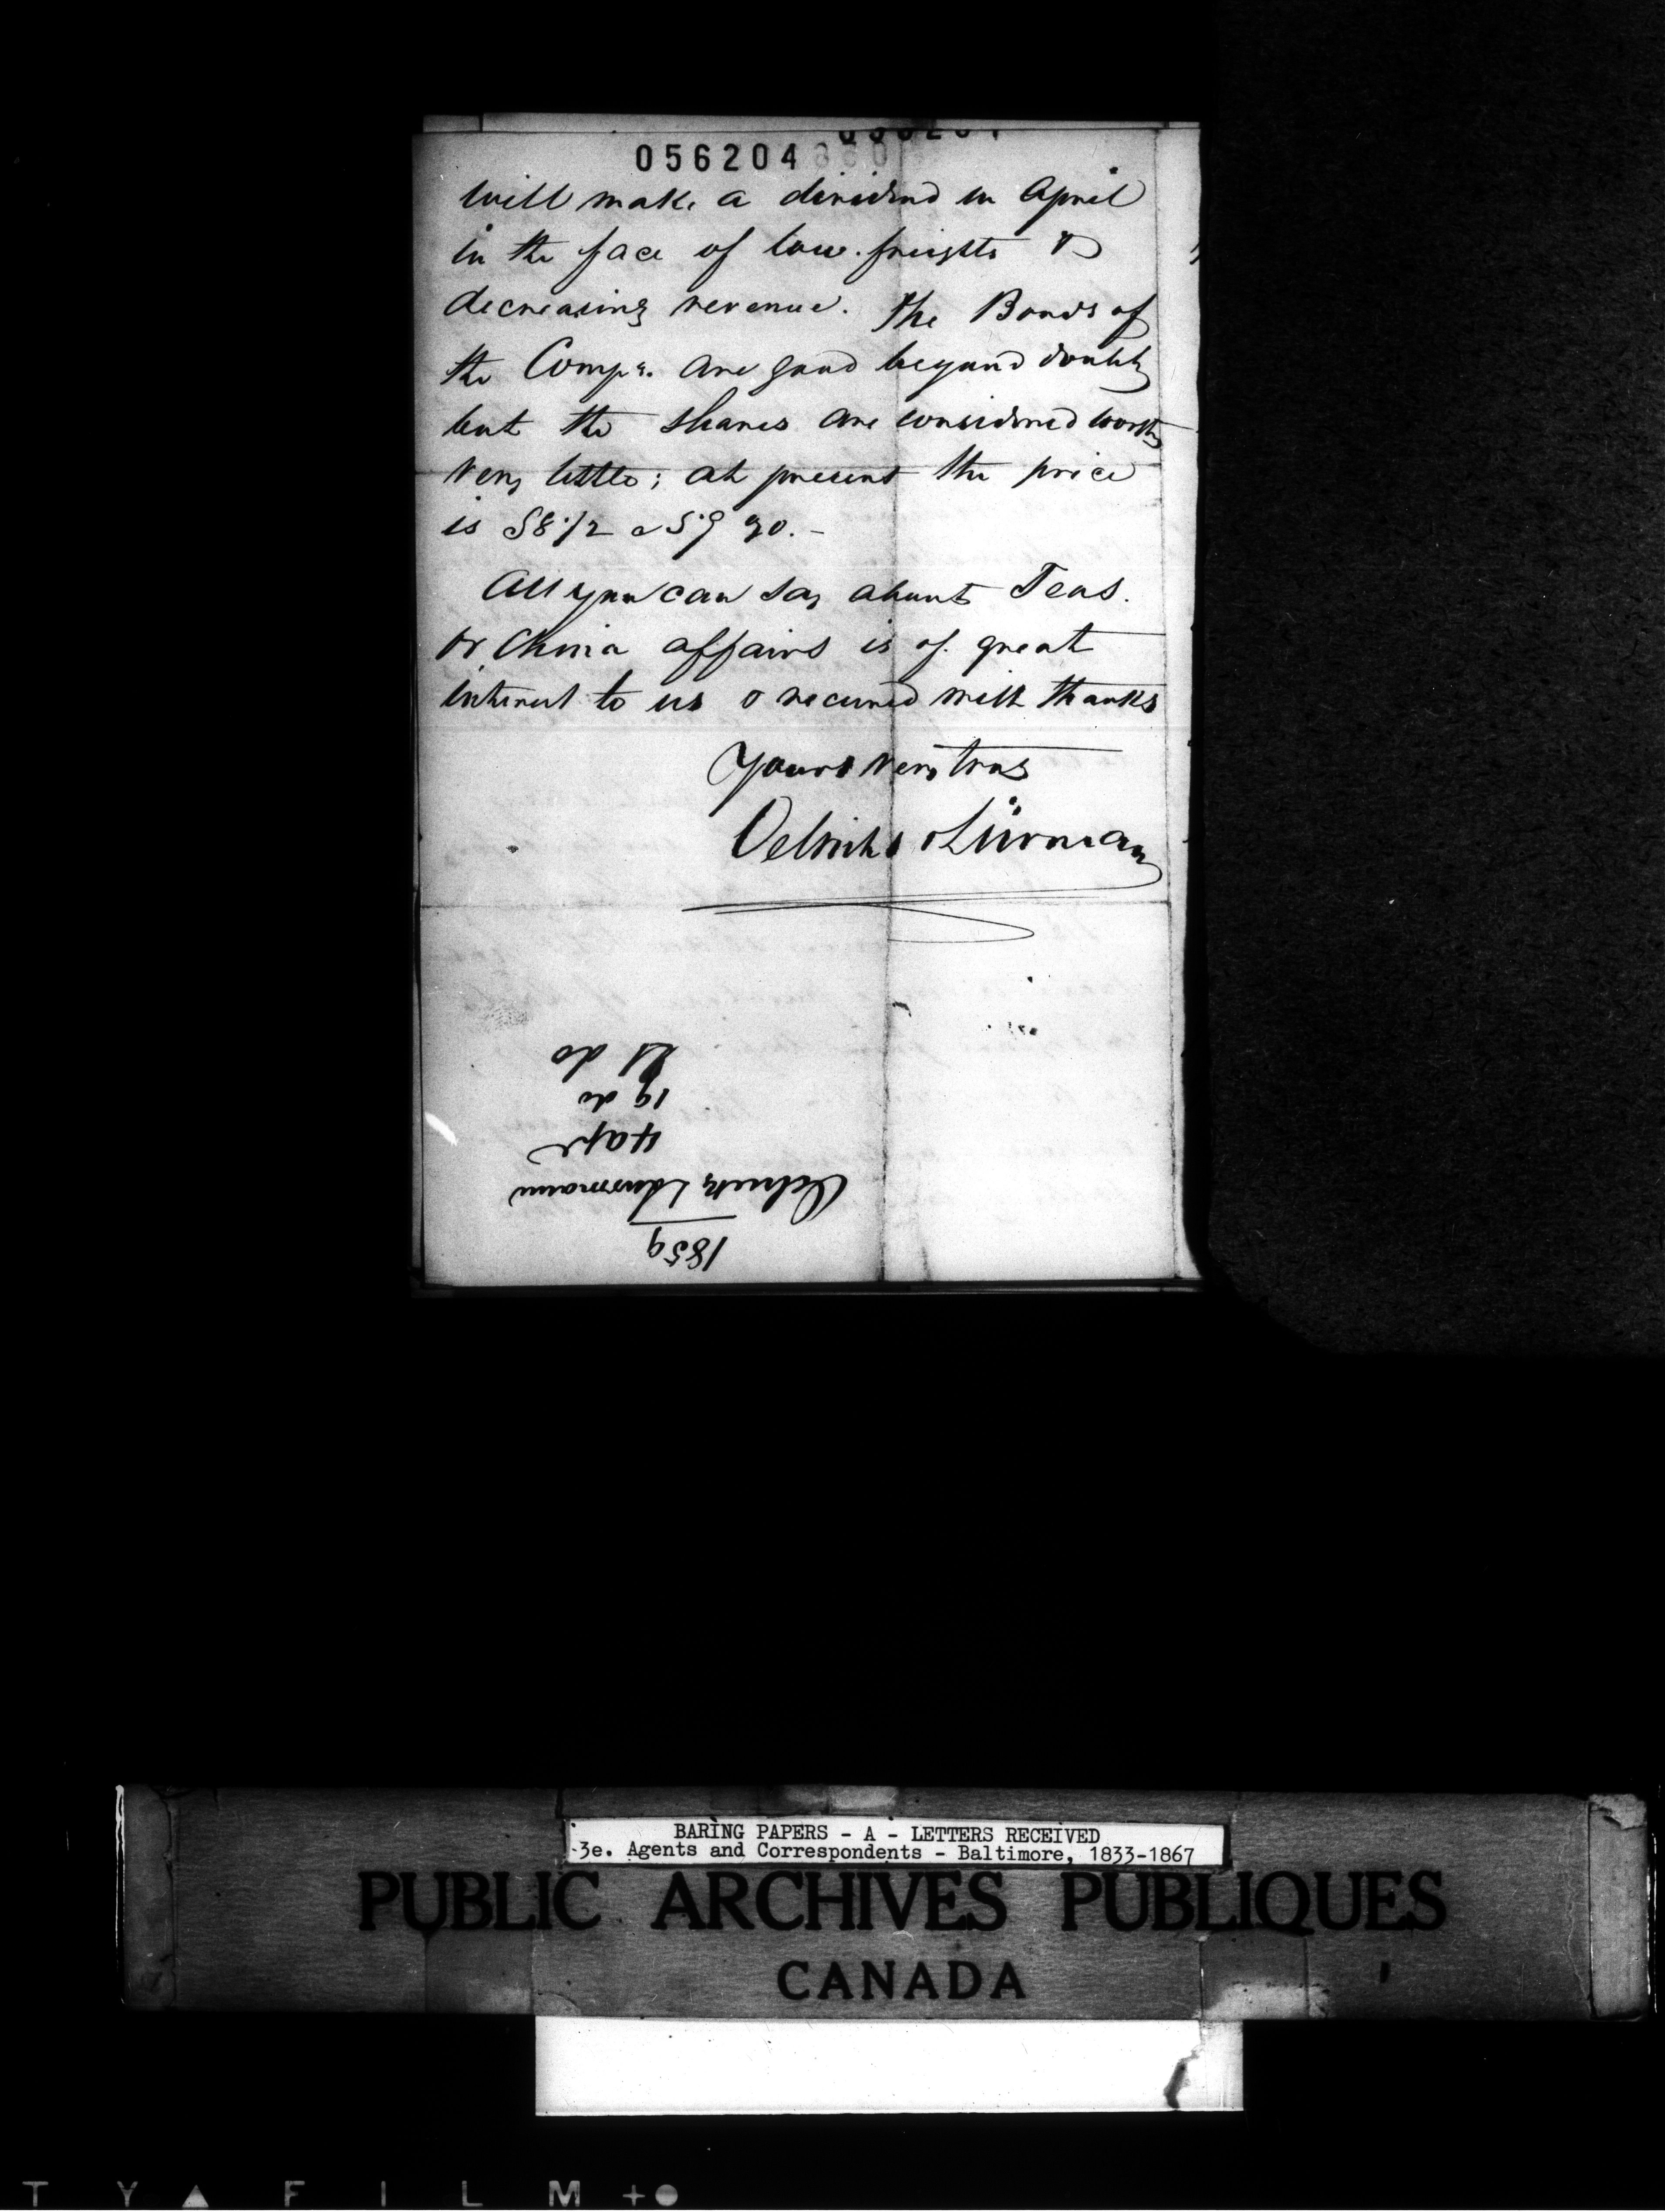 056204
will make a dividend in April
in the face of low freights &
decreasing revenue. The Bonds of
the Compy. are good beyond doubt
but the shares are considered worth
very little; at present the price
is 58 1/2 a 59 %.-
All you can say about Teas.
or China affairs is of great
interest to us & received with thanks
Yours very truly
Oelrichs & Lürman
1859
Oelrichs & Lurmann
4 apr
19 do
21 do
BARING PAPERS - A - LETTERS RECEIVED
3e. Agents and Correspondents - Baltimore, 1833-1867
PUBLIC ARCHIVES PUBLIQUES
CANADA
T Y F I L M